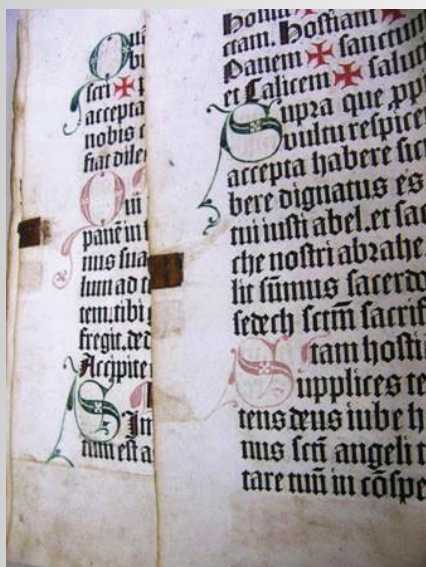 Quā
scri ✠ p
accepta
nobis
fiat dile
Qui
panē in
nus sua
lum ad
tem.tibi
fregit.ded
Accipite
Sim
tum est a
ctam. Hostiam ✠
Panem ✠ sanctum
et Calicem ✠ salut
Supra que pp
vultu respice
accepta habere sict
bere dignatus es
tui iusti abel.et sac
che nostri abrahe
lit sūmus sacerdo
sedech sctm̄ sacrif
tam hosti
Supplices te
tens deus iube h
nus scti angeli t
tare tuū in cōspe